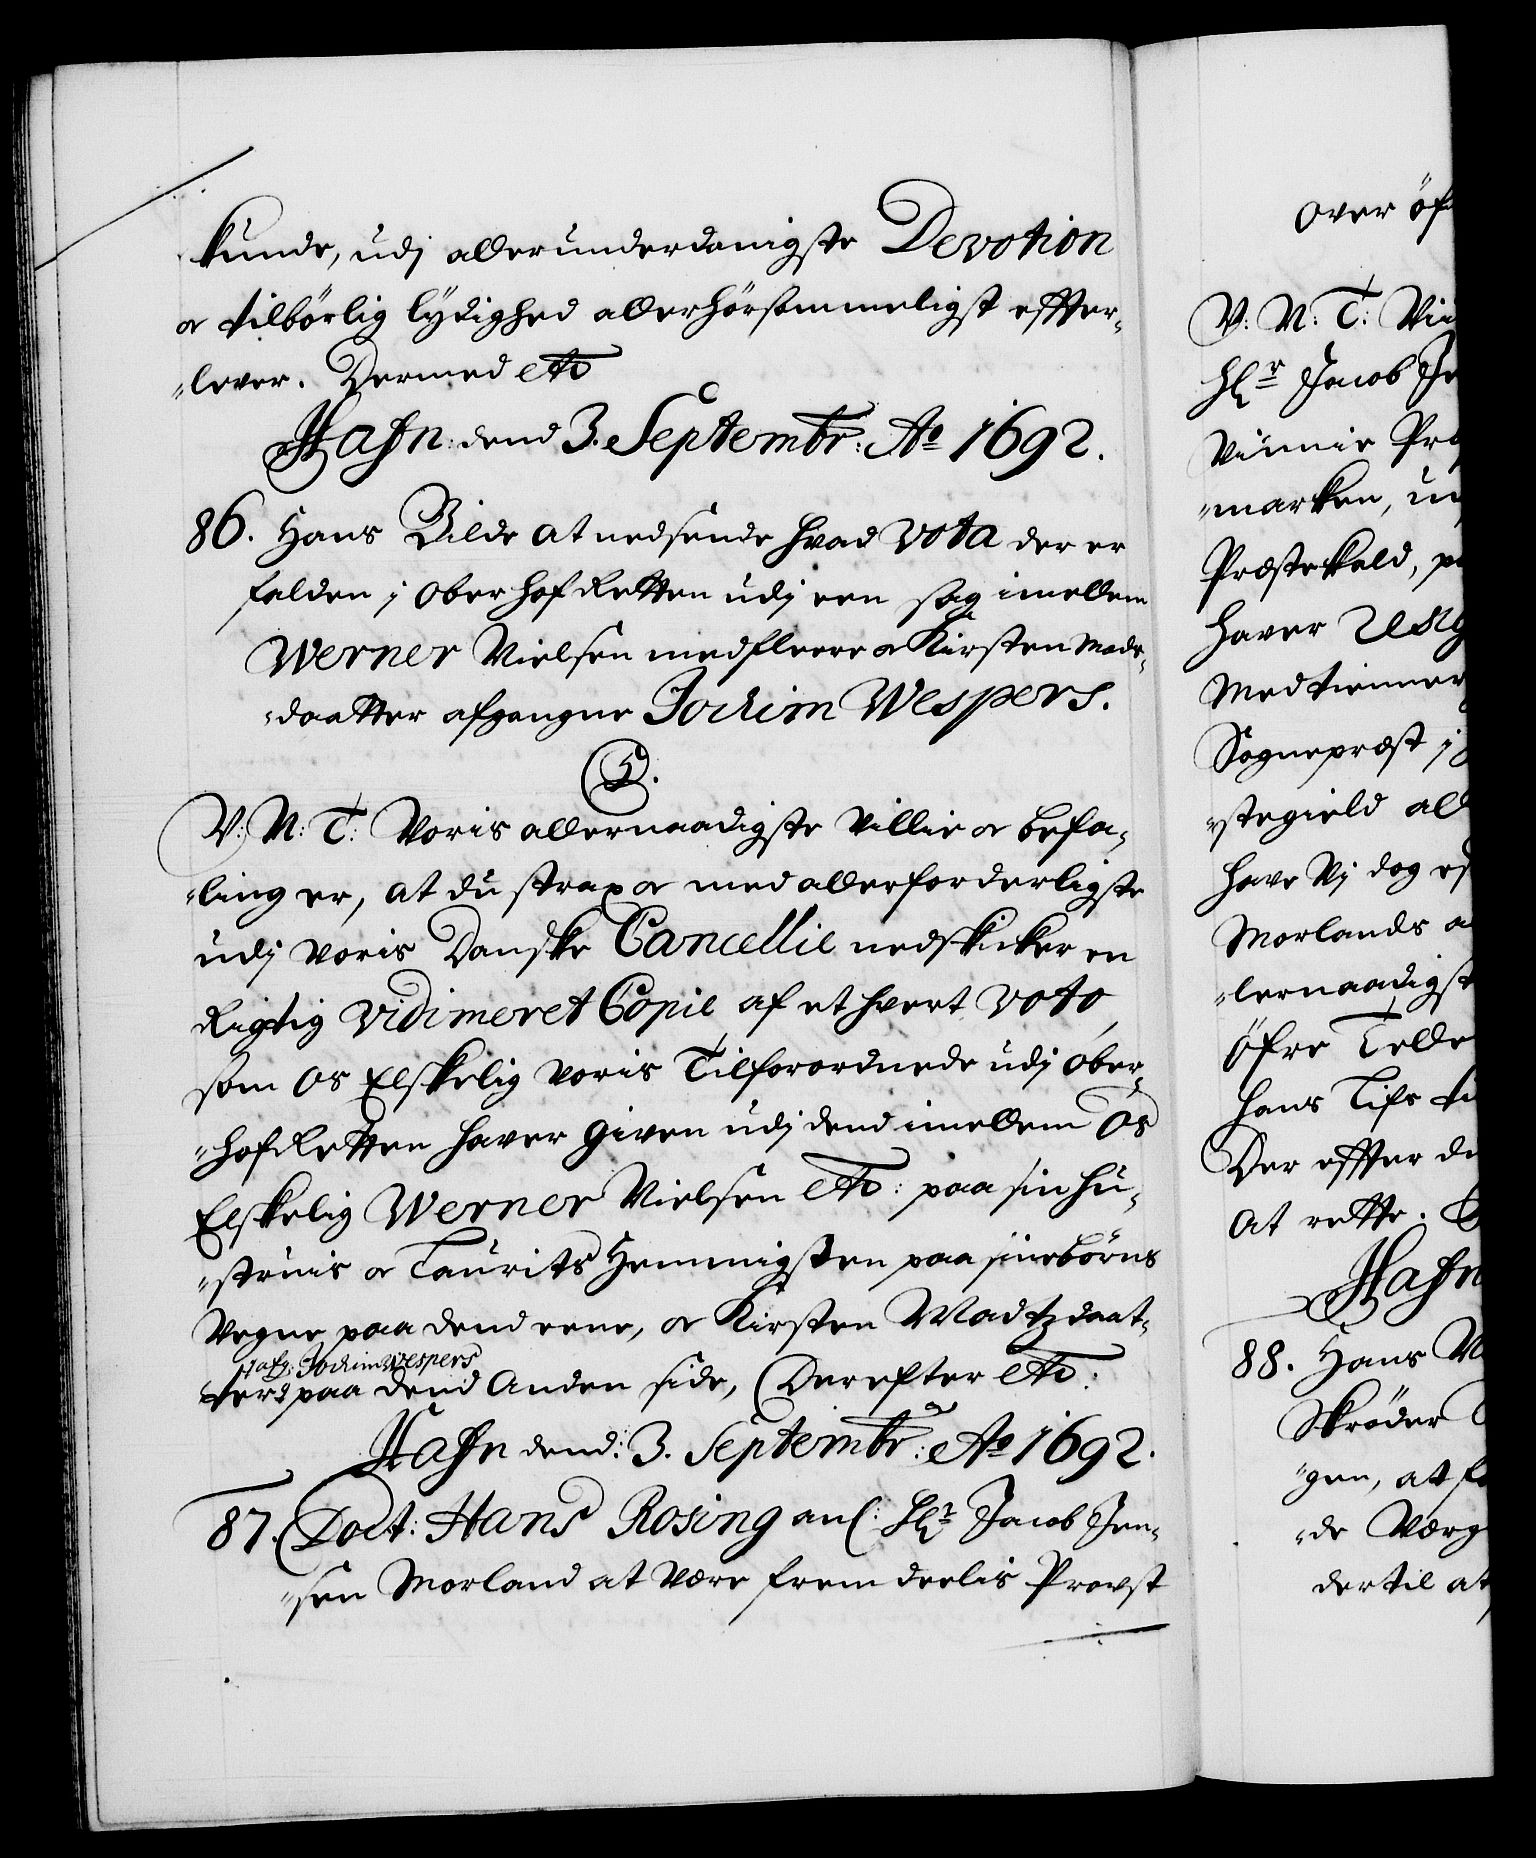 kunde, udj allerunderdanigste Devotion
og tilbörlig lydighed allerhörsommeligst effter-
"lever. Dermed etc
Hafn: dend 3. Septembr: Ao 1692.
86. Hans Bilde at nedsende hvad vota der er
falden j Oberhofretten udj een sag imellem
Werner Nielsen med fleere og Kirsten Mads-
"daatter afgangne Jochim Wespers.
C5.
V: N: T: Voris allernaadigste Villie og befa-
"ling er, at du strax og med allerforderligste
udj Voris Danske Cancellie nedskicker en
Rigtig vidimeret Copie af et hvert voto,
som Os Elskelig voris Tilforordnede udj Ober-
"hofRetten haver given udj dend imellem Os
Elskelig Werner Nielsen etc: paa sin hu-
"struis og Laurits Hemmigsen paa sine börns
Vegne paa dend eene, og Kirsten Madtzdaat-
afg: Jochim Wespers
ters paa dend Anden side, Derefter etc:
Hafn dend: 3. Septembr: Ao 1692.
87. Doct: Hans Rosing anl: Hr Jacob Jen-
"sen Morland at være fremdeelis Provst
over öf
V: N: T: Vii
Hr Jacob Je
Vinnie Pro
"marken, un
Præstekald, p
haver
Medtienner
Sognepræst j
"stegield all
have Vj dog ef
Morlands a
"lernaadigst
Öfre Telle
hans Lifs ti
Der effter du
at rette.
Hafn
88. Hans M
Skröder
"gen, at f
"de Værg
dertil at